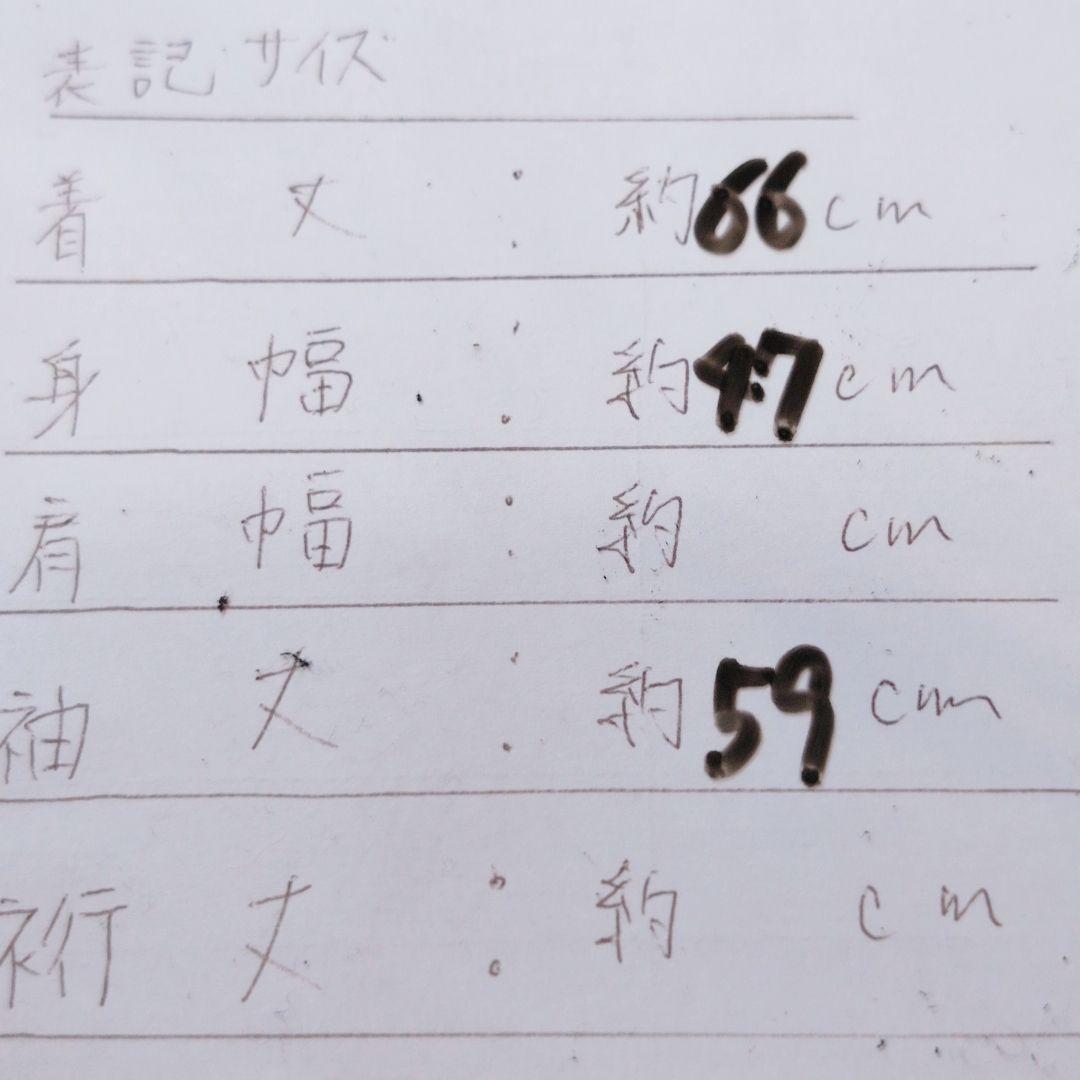 表記サイズ
着丈：約66cm
身幅：約47cm
肩幅：約 cm
袖丈：約59cm
裄丈：約 cm